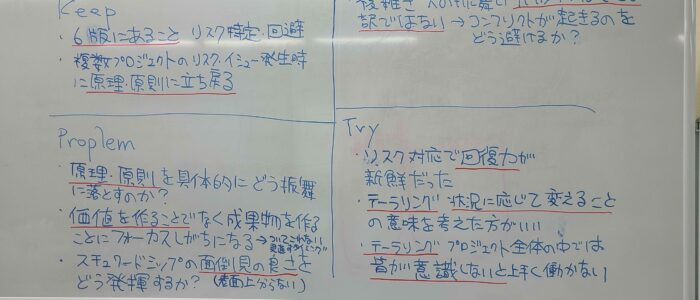 Keep
・6版にあること リスク特定・回避
・複数プロジェクトのリスク・イシュー発生時
に原理・原則に立ち戻る
訳ではない→コンフリクトが起きるのを
どう避けるか?
Proplem
・原理・原則を具体的にどう振舞
に落とすのか?
・価値を作ることでなく成果物を作る
ことにフォーカスしがちになる→ついてこれない
・スチュワードシップの面倒見の良さを
どう発揮するか?(書面上分からない)
Try
・リスク対応で回復力が
新鮮だった
・テーラリング 状況に応じて変えること
の意味を考えた方がいい
・テーラリング プロジェクト全体の中では
皆が意識しないと上手く働かない